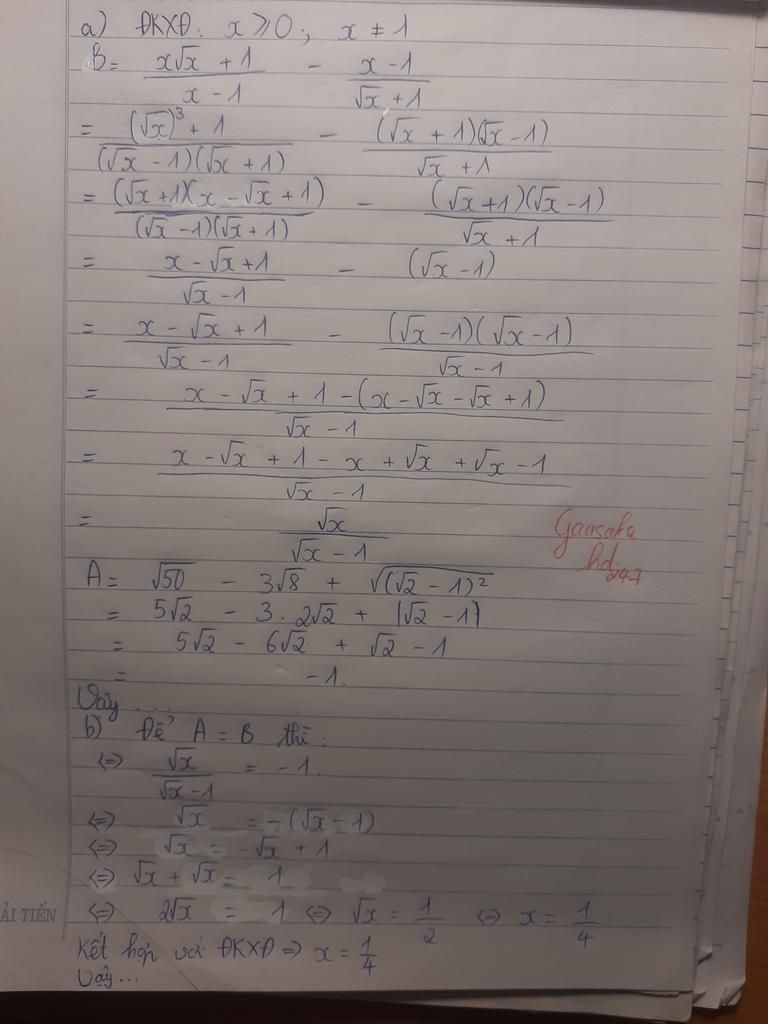 a) ĐKXĐ: x ⩾ 0 ; x ≠ 1
B = (x√x + 1)/(x - 1) - (x - 1)/(√x + 1)
= ((√x)³ + 1)/((√x - 1)(√x + 1)) - ((√x + 1)(√x - 1))/(√x + 1)
= ((√x + 1)(x - √x + 1))/((√x - 1)(√x + 1)) - ((√x + 1)(√x - 1))/(√x + 1)
= (x - √x + 1)/(√x - 1) - (√x - 1)
= (x - √x + 1)/(√x - 1) - ((√x - 1)(√x - 1))/(√x - 1)
= (x - √x + 1 - (x - √x - √x + 1))/(√x - 1)
= (x - √x + 1 - x + √x + √x - 1)/(√x - 1)
= √x/(√x - 1)
hd247
A = √50 - 3√8 + √((√2 - 1)²)
= 5√2 - 3.2√2 + |√2 - 1|
= 5√2 - 6√2 + √2 - 1
= -1.
Vậy ...
b) Để A = B thì:
⇔ √x/(√x - 1) = -1.
⇔ √x = -(√x - 1)
⇔ √x = -√x + 1
⇔ √x + √x = 1
⇔ 2√x = 1 ⇔ √x = 1/2 ⇔ x = 1/4
Kết hợp với ĐKXĐ ⇒ x = 1/4
Vậy...
ẢI TIẾN